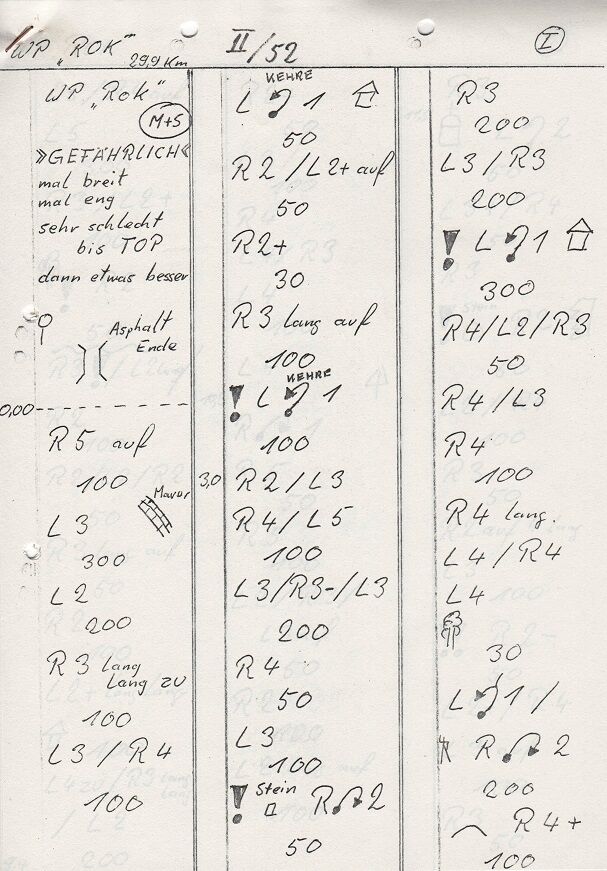 WP „ROK" 29,9 Km
II/52
I
WP „Rok"
M+S
»GEFÄHRLICH«
mal breit
mal eng
sehr schlecht
bis TOP
dann etwas besser
Asphalt
Ende
0,00
R5 auf
100
Mauer
L3
300
L2
200
R3 lang
Lang zu
100
L3/R4
100
KEHRE
L 1
50
R2/L2+ auf
50
R2+
30
R3 lang auf
100
KEHRE
! L 1
100
3,0 R2/L3
R4/L5
100
L3/R3-/L3
200
R4
50
L3
100
! Stein R 2
50
R3
200
L3/R3
200
! L 1
300
R4/L2/R3
50
R4/L3
R4
100
R4 lang.
L4/R4
L4
30
L 1/
R 2
200
R4+
100